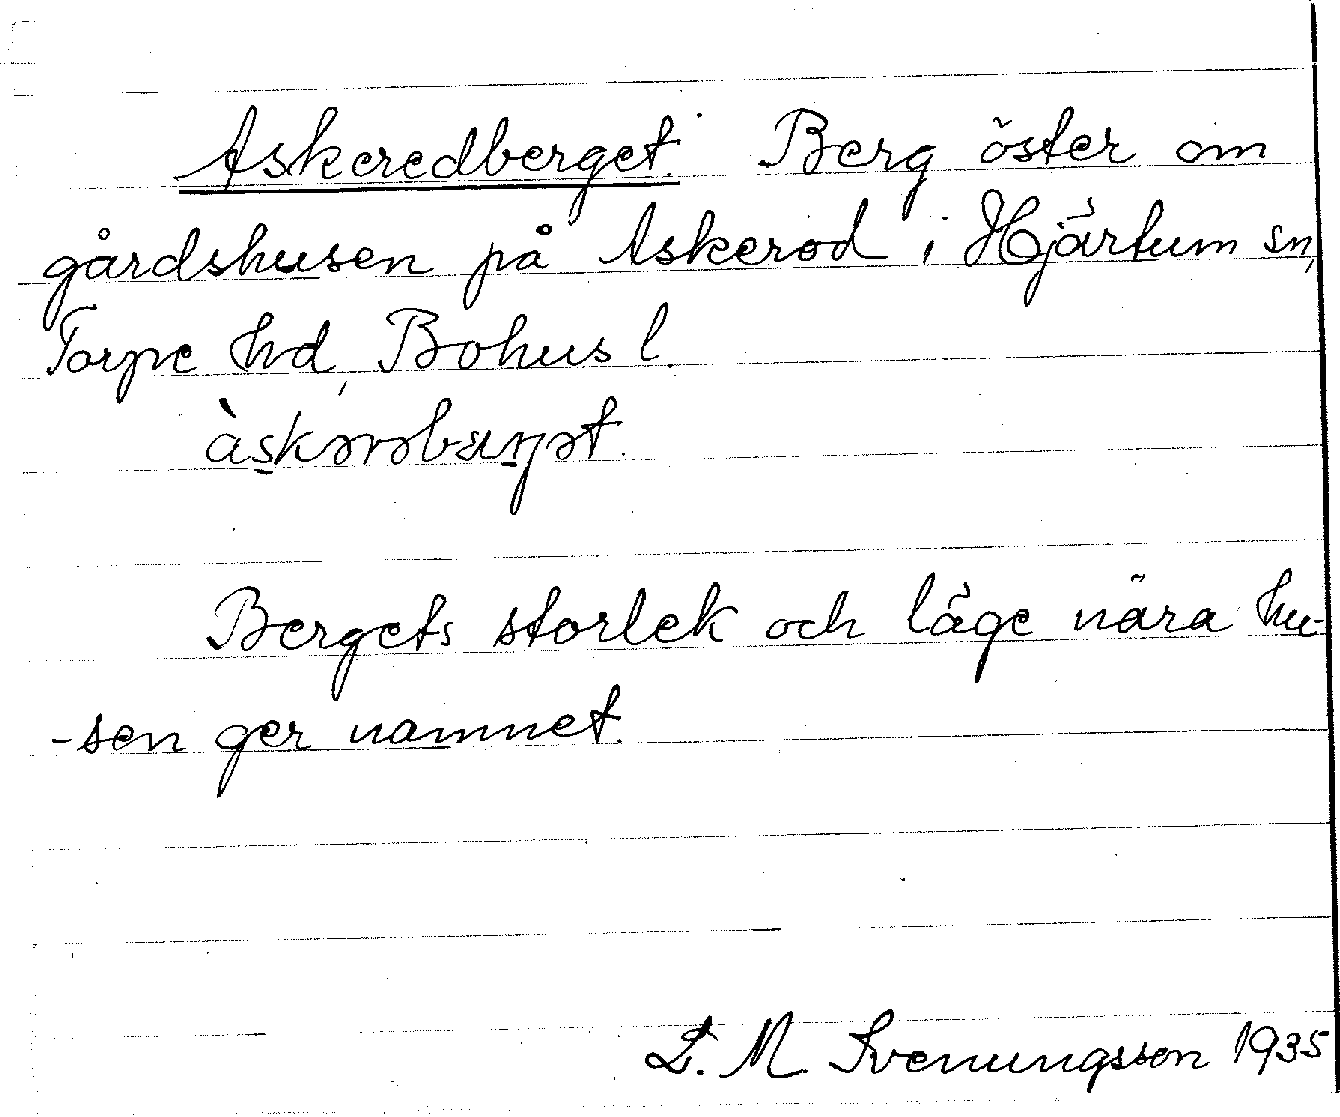 Askeredberget. Berg öster om
gårdshusen på Askerod i Hjärtum sn,
Torpe hd, Bohus l.
àskərəbærjət.
Bergets storlek och läge nära hu-
-sen ger namnet.
L. M. Svenungsson 1935